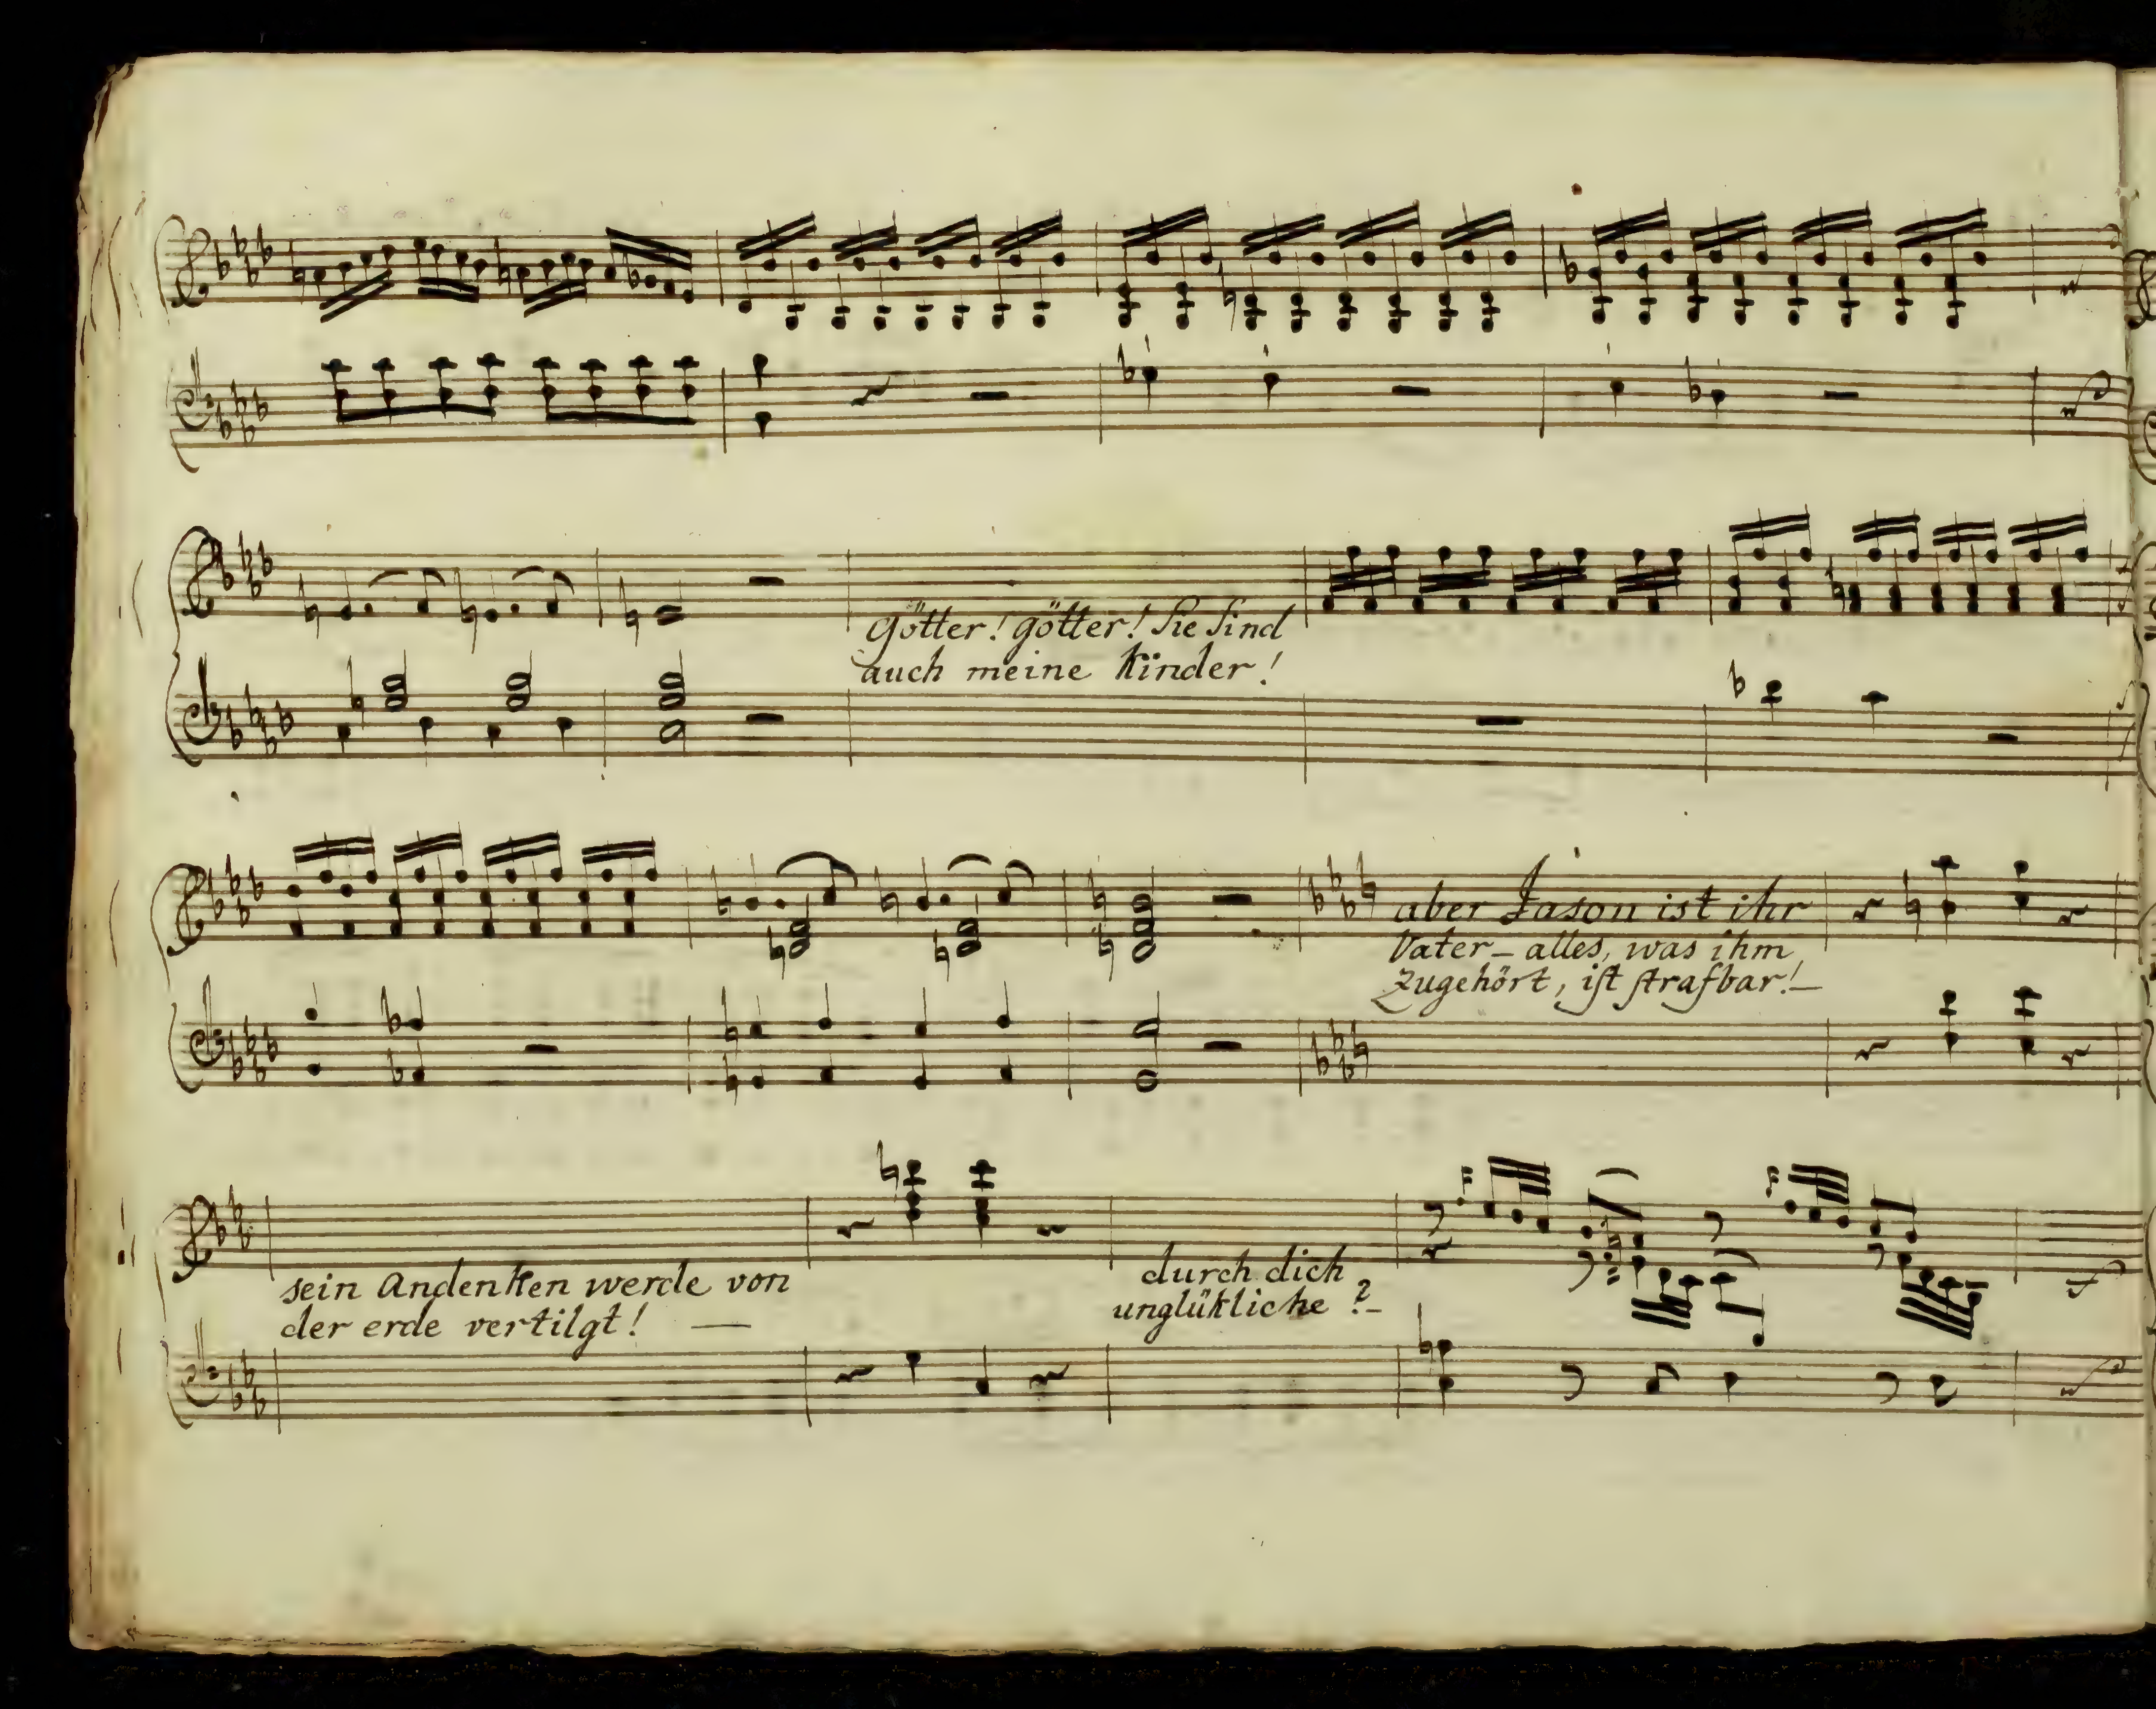 Götter! götter! Sie sind
auch meine Kinder!
aber Jason ist ihr
Vater – alles, was ihm
Zugehört, ist strafbar! –
sein Andenken werde von
der erde vertilgt! —
durch dich
unglükliche ? –